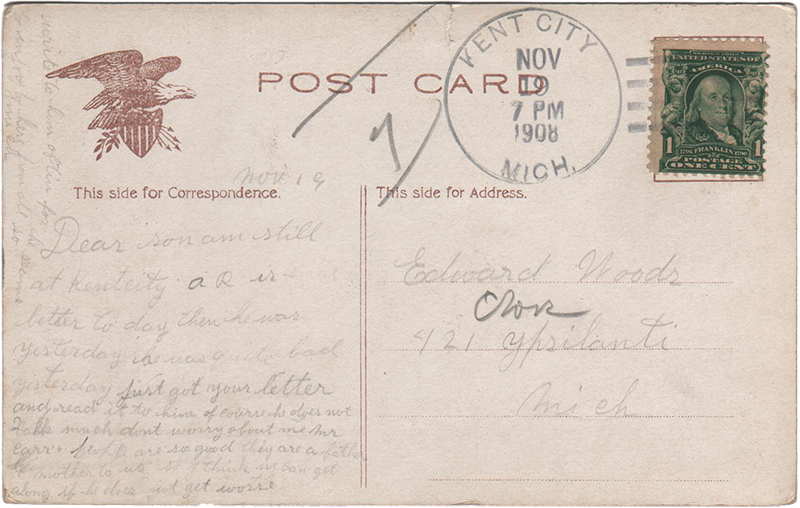 POST CARD
KENT CITY
NOV
19
7 PM
1908
MICH.
SERIES 1902
UNITED STATES OF
AMERICA
1706 FRANKLIN 1790
1 1
POSTAGE
ONE CENT
7
This side for Correspondence.
This side for Address.
Nov 19
Dear son am still
at Kentcity a R is
better to day then he was
yesterday he was quite bad
yesterday just got your letter
and read it to him of course he does not
talk much dont worry about me Mr
Carr's people are so good they are a father
& mother to us so I think we can get
along if he does not get worse
write to him often for
he
so
Edward Woods
421 Ypsilanti
Mich